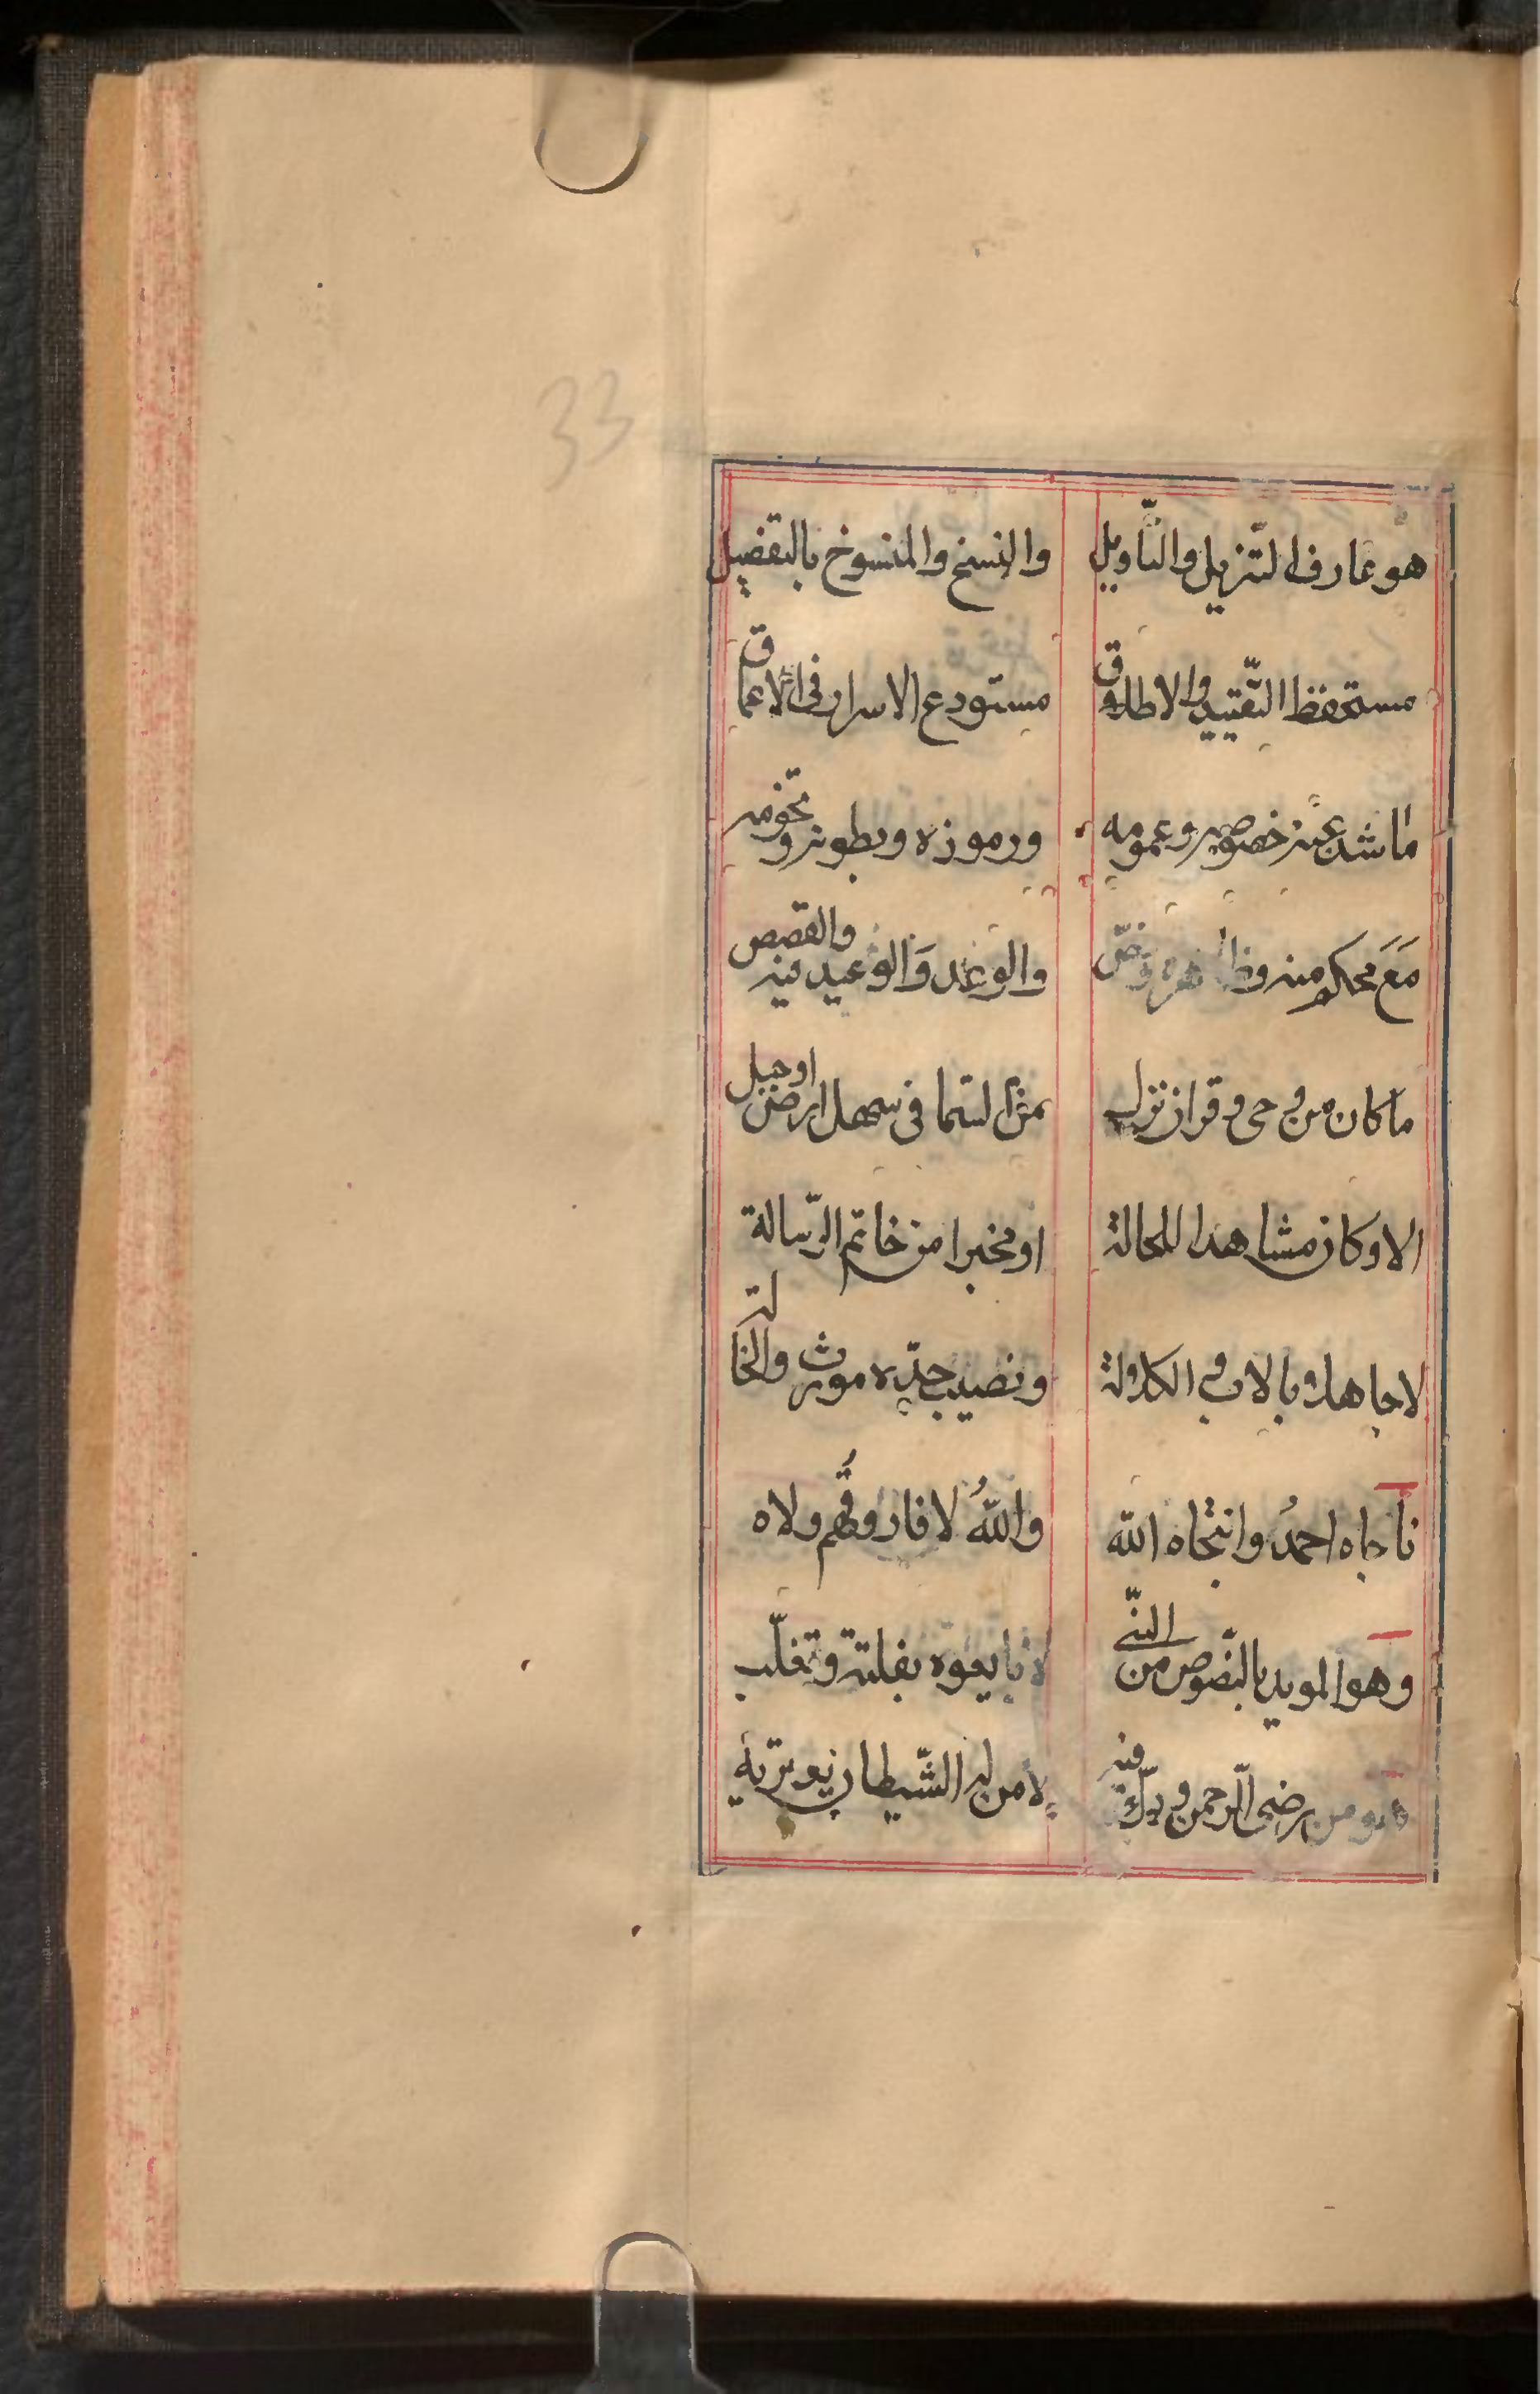 33
هو عارف التّنزيل والتّأويل
والنسخ والمنسوخ بالتفضيل
مستحفظ التّقييد والاطلاق
مستودع الاسرار فى الاعماق
ما شد عنه خصوصه وعمومه
ورموزه وبطونه وتخومه
مَعَ محكم منه وظاهره ونصّ
والوعد وَالوعيد فيه والقصص
ما كان من وحى وقران نزل
من السّما فى سهل ارض او جبل
الا وكان مشاهدا للحالة
او مخبرا من خاتم الرّسالة
لا جاهلا بالاب فى الكلالة
ونصيب جدّه مورث والخالة
ناجاه احمدُ وانتجاه الله
واللهُ لا فاروقُهم ولاه
وهو المويد بالنّصوص من النّبى
لا بايعوه بفلتة وتغلّب
هو من رضى الرّحمن
لا من له الشّيطان يعتريه